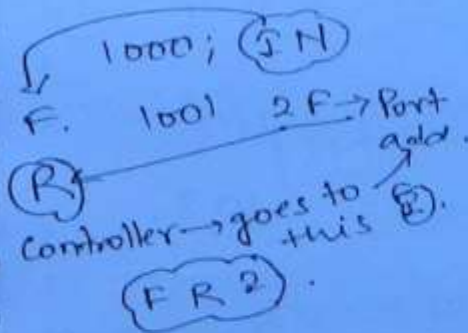 1000; IN
F. 1001 2F → Port
add.
R
Controller → goes to
this
F R 2.